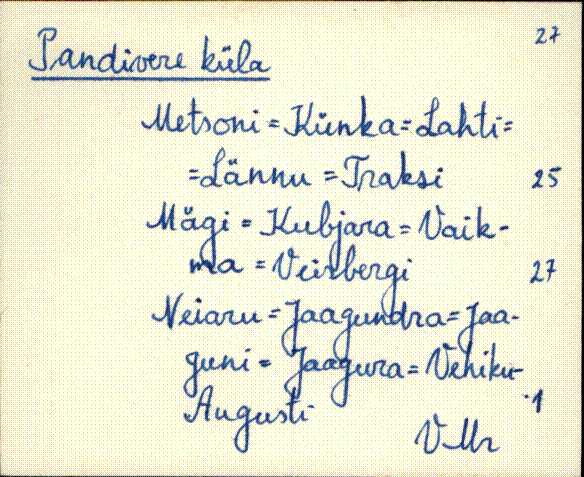 27
Pandivere küla
Metsoni = Künka = Lahti =
= Lännu = Traksi 25
Mägi = Kubjara = Vaik-
ma = Veisbergi 27
Neiaru = Jaagundra = Jaa-
guni = Jaagura = Vehiku-
Augusti 1
VMr